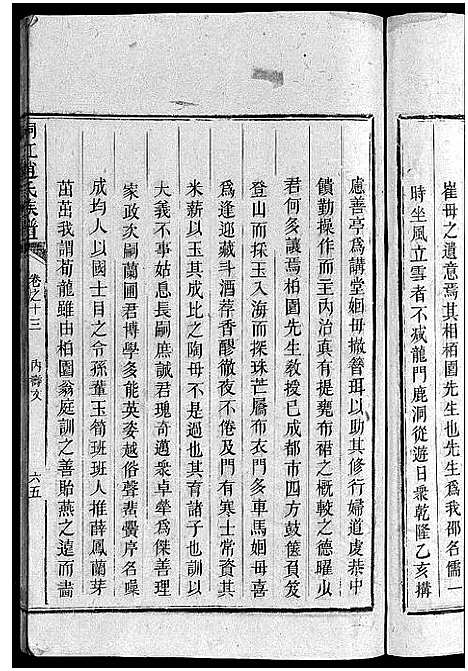 崔母之遺意焉其柏園先生也先生爲我邵名儒一
時坐風立雪者不减龍門鹿洞從遊日衆乾隆乙亥搆
慮善亭爲講堂姻母撤簪珥以助其修行婦道虔恭中
饋勤操作而主丙治真有提甕布裙之概較之德曜少
君何多讓焉柏園先生教授已成都市四方鼓篋頁笈
登山而採玉入海而探珠芒屩布衣門多車馬姻母喜
爲逢迎藏斗酒荐香醪徹夜不倦及門有寒士常資其
米薪以玉其成比之陶母不是過也其育諸子也訓以
大義不事姑息長嗣庶誠君瑰奇邁衆卓犖爲傑善理
家政次嗣蘭圃君博學多能英姿越俗聲蜚黌序名噪
成均人以國士目之令孫輩玉筍班班人推薛鳳蘭芽
茁茁我謂荀龍雖由柏園翁庭訓之善貽燕之遠而嗇
洞江趙氏族譜
卷之十三
內壽文
六五